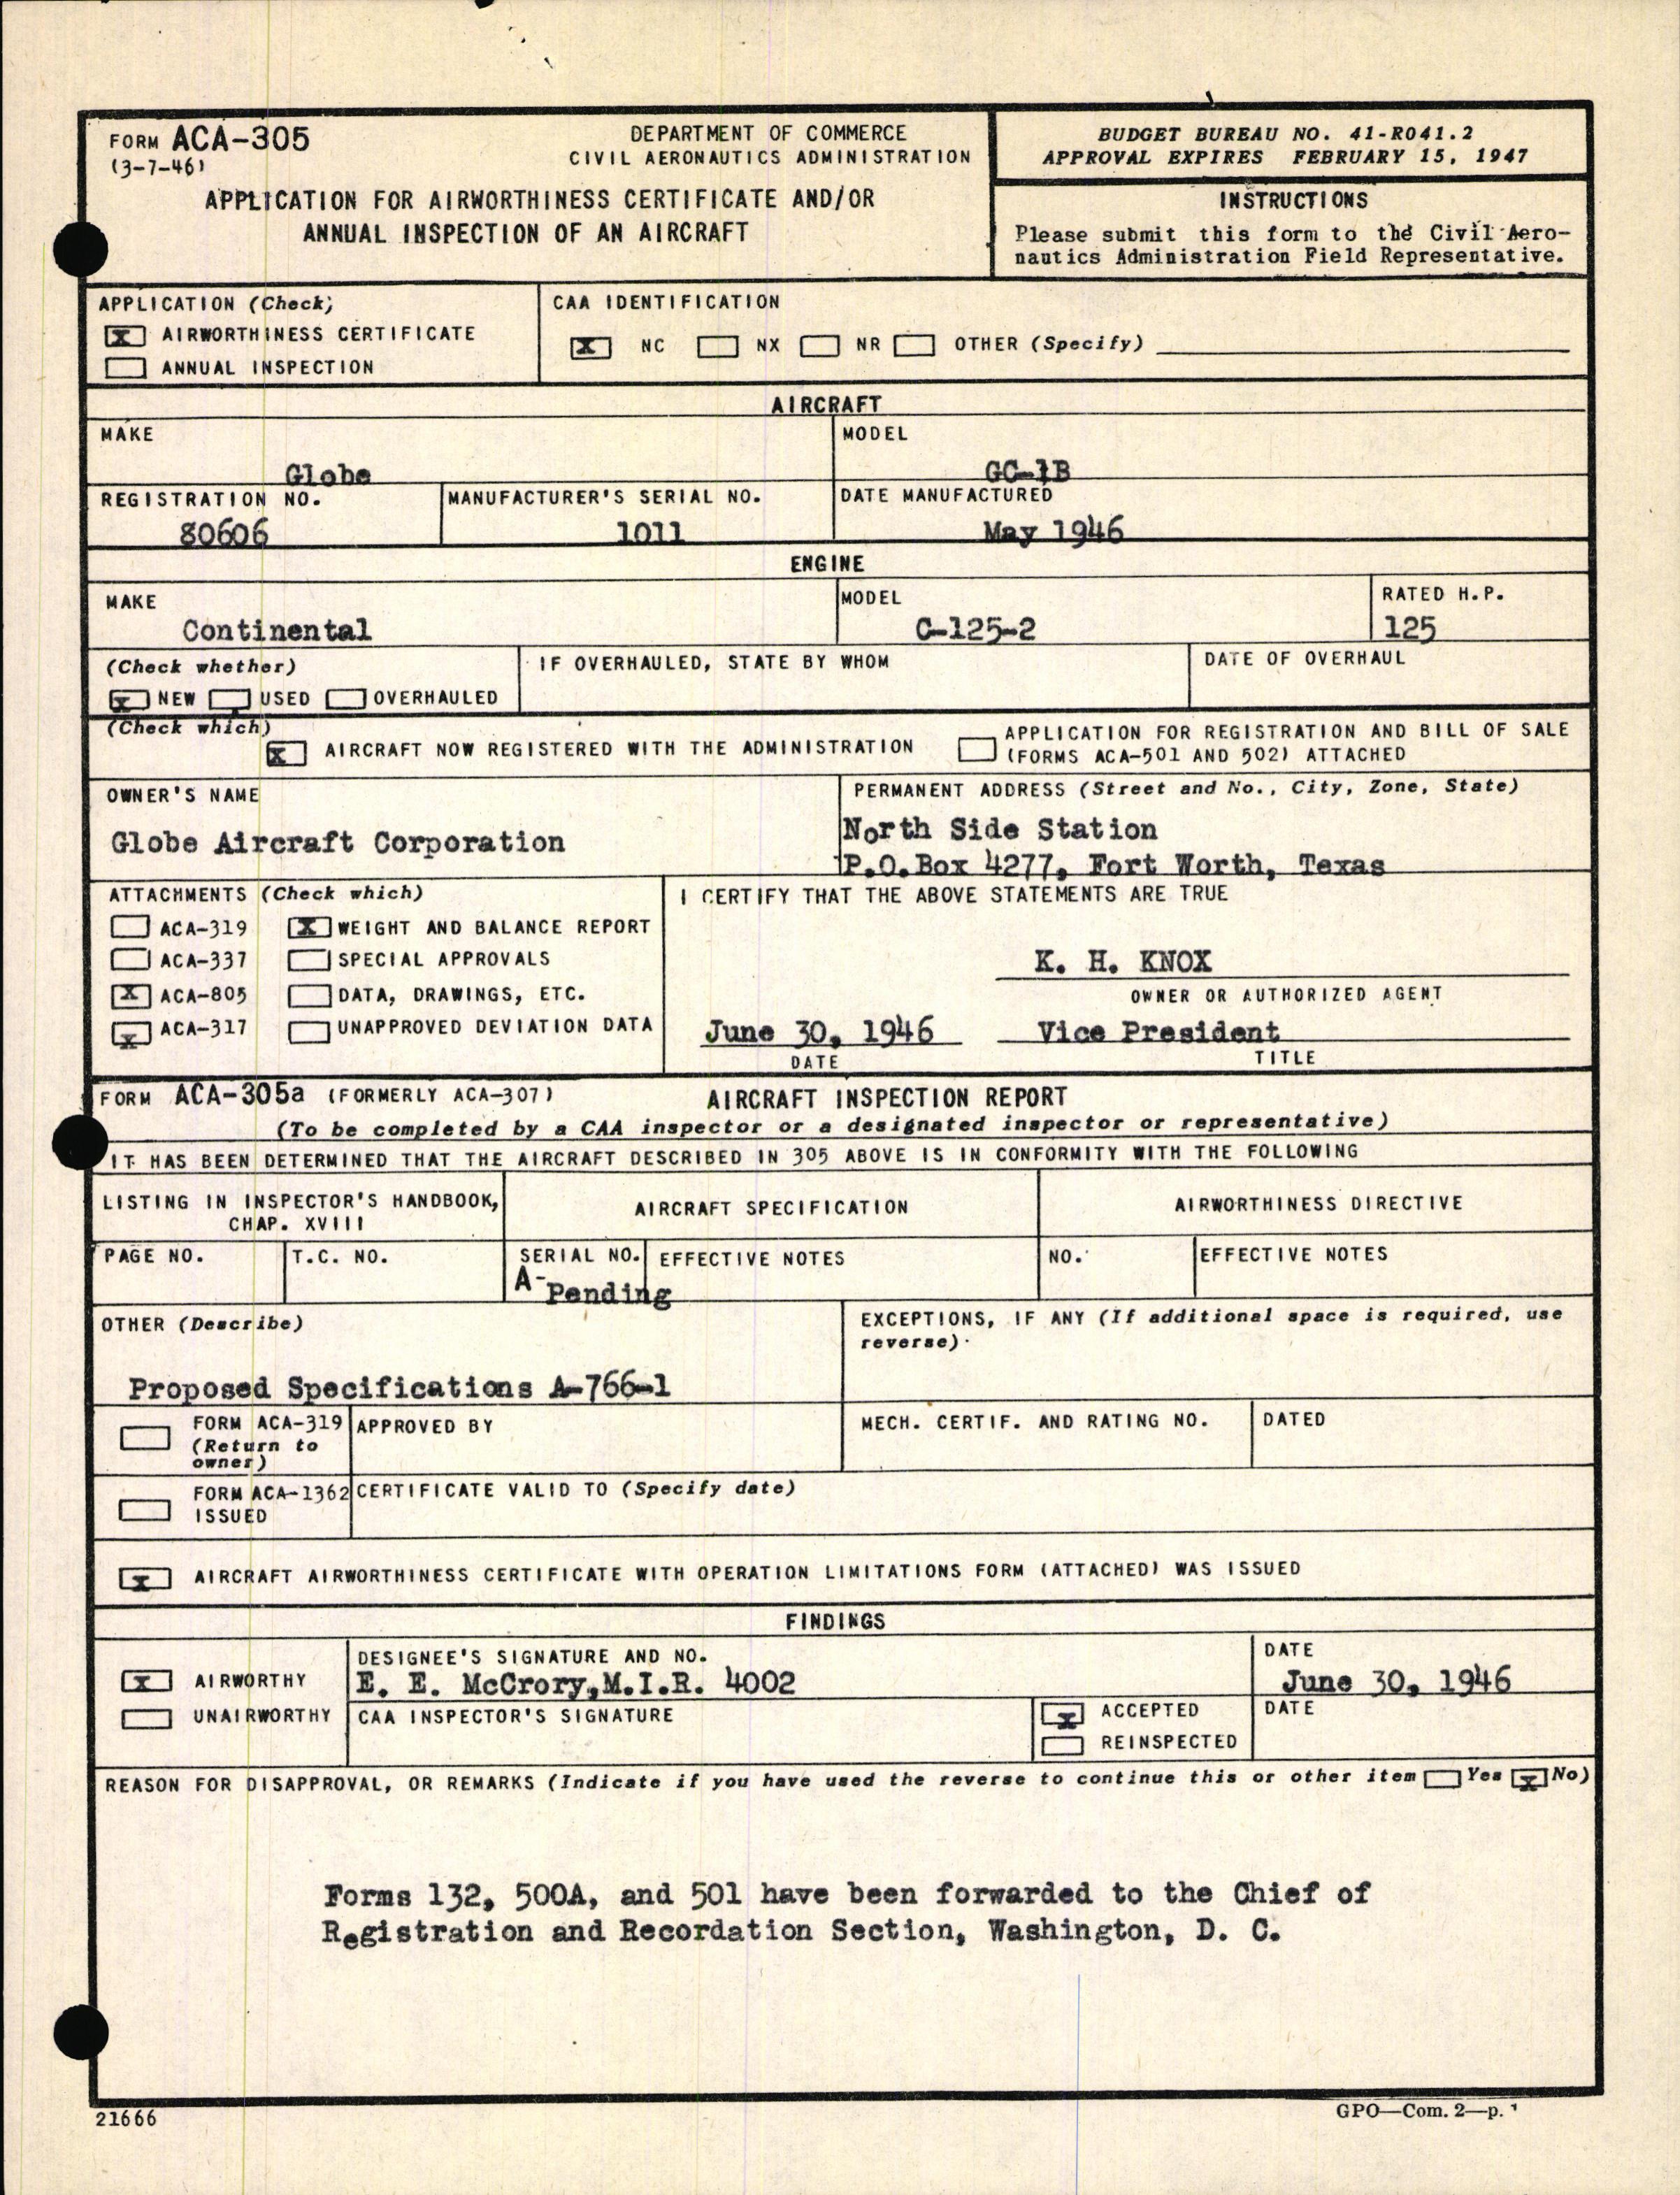 FORM ACA-305
(3-7-46)
DEPARTMENT OF COMMERCE
CIVIL AERONAUTICS ADMINISTRATION
APPLICATION FOR AIRWORTHINESS CERTIFICATE AND/OR
ANNUAL INSPECTION OF AN AIRCRAFT
BUDGET BUREAU NO. 41-R041.2
APPROVAL EXPIRES FEBRUARY 15, 1947
INSTRUCTIONS
Please submit this form to the Civil Aero-
nautics Administration Field Representative.
APPLICATION (Check)
X AIRWORTHINESS CERTIFICATE
ANNUAL INSPECTION
CAA IDENTIFICATION
X NC NX NR OTHER (Specify)
AIRCRAFT
MAKE
Globe
MODEL
GC-1B
REGISTRATION NO.
80606
MANUFACTURER'S SERIAL NO.
1011
DATE MANUFACTURED
May 1946
ENGINE
MAKE
Continental
MODEL
C-125-2
RATED H.P.
125
(Check whether)
X NEW USED OVERHAULED
IF OVERHAULED, STATE BY WHOM
DATE OF OVERHAUL
(Check which)
X AIRCRAFT NOW REGISTERED WITH THE ADMINISTRATION
APPLICATION FOR REGISTRATION AND BILL OF SALE
(FORMS ACA-501 AND 502) ATTACHED
OWNER'S NAME
Globe Aircraft Corporation
PERMANENT ADDRESS (Street and No., City, Zone, State)
North Side Station
P.O.Box 4277, Fort Worth, Texas
ATTACHMENTS (Check which)
ACA-319 X WEIGHT AND BALANCE REPORT
ACA-337 SPECIAL APPROVALS
X ACA-805 DATA, DRAWINGS, ETC.
X ACA-317 UNAPPROVED DEVIATION DATA
I CERTIFY THAT THE ABOVE STATEMENTS ARE TRUE
K. H. KNOX
OWNER OR AUTHORIZED AGENT
June 30, 1946 Vice President
DATE TITLE
FORM ACA-305a (FORMERLY ACA-307) AIRCRAFT INSPECTION REPORT
(To be completed by a CAA inspector or a designated inspector or representative)
IT HAS BEEN DETERMINED THAT THE AIRCRAFT DESCRIBED IN 305 ABOVE IS IN CONFORMITY WITH THE FOLLOWING
LISTING IN INSPECTOR'S HANDBOOK,
CHAP. XVIII
AIRCRAFT SPECIFICATION
AIRWORTHINESS DIRECTIVE
PAGE NO. T.C. NO. SERIAL NO. EFFECTIVE NOTES NO. EFFECTIVE NOTES
A- Pending
OTHER (Describe)
Proposed Specifications A-766-1
EXCEPTIONS, IF ANY (If additional space is required, use
reverse)
FORM ACA-319
(Return to
owner)
APPROVED BY
MECH. CERTIF. AND RATING NO.
DATED
FORM ACA-1362
ISSUED
CERTIFICATE VALID TO (Specify date)
X AIRCRAFT AIRWORTHINESS CERTIFICATE WITH OPERATION LIMITATIONS FORM (ATTACHED) WAS ISSUED
FINDINGS
X AIRWORTHY
UNAIRWORTHY
DESIGNEE'S SIGNATURE AND NO.
E. E. McCrory,M.I.R. 4002
DATE
June 30, 1946
CAA INSPECTOR'S SIGNATURE
X ACCEPTED
REINSPECTED
DATE
REASON FOR DISAPPROVAL, OR REMARKS (Indicate if you have used the reverse to continue this or other item Yes X No)
Forms 132, 500A, and 501 have been forwarded to the Chief of
Registration and Recordation Section, Washington, D. C.
21666
GPO—Com. 2—p.